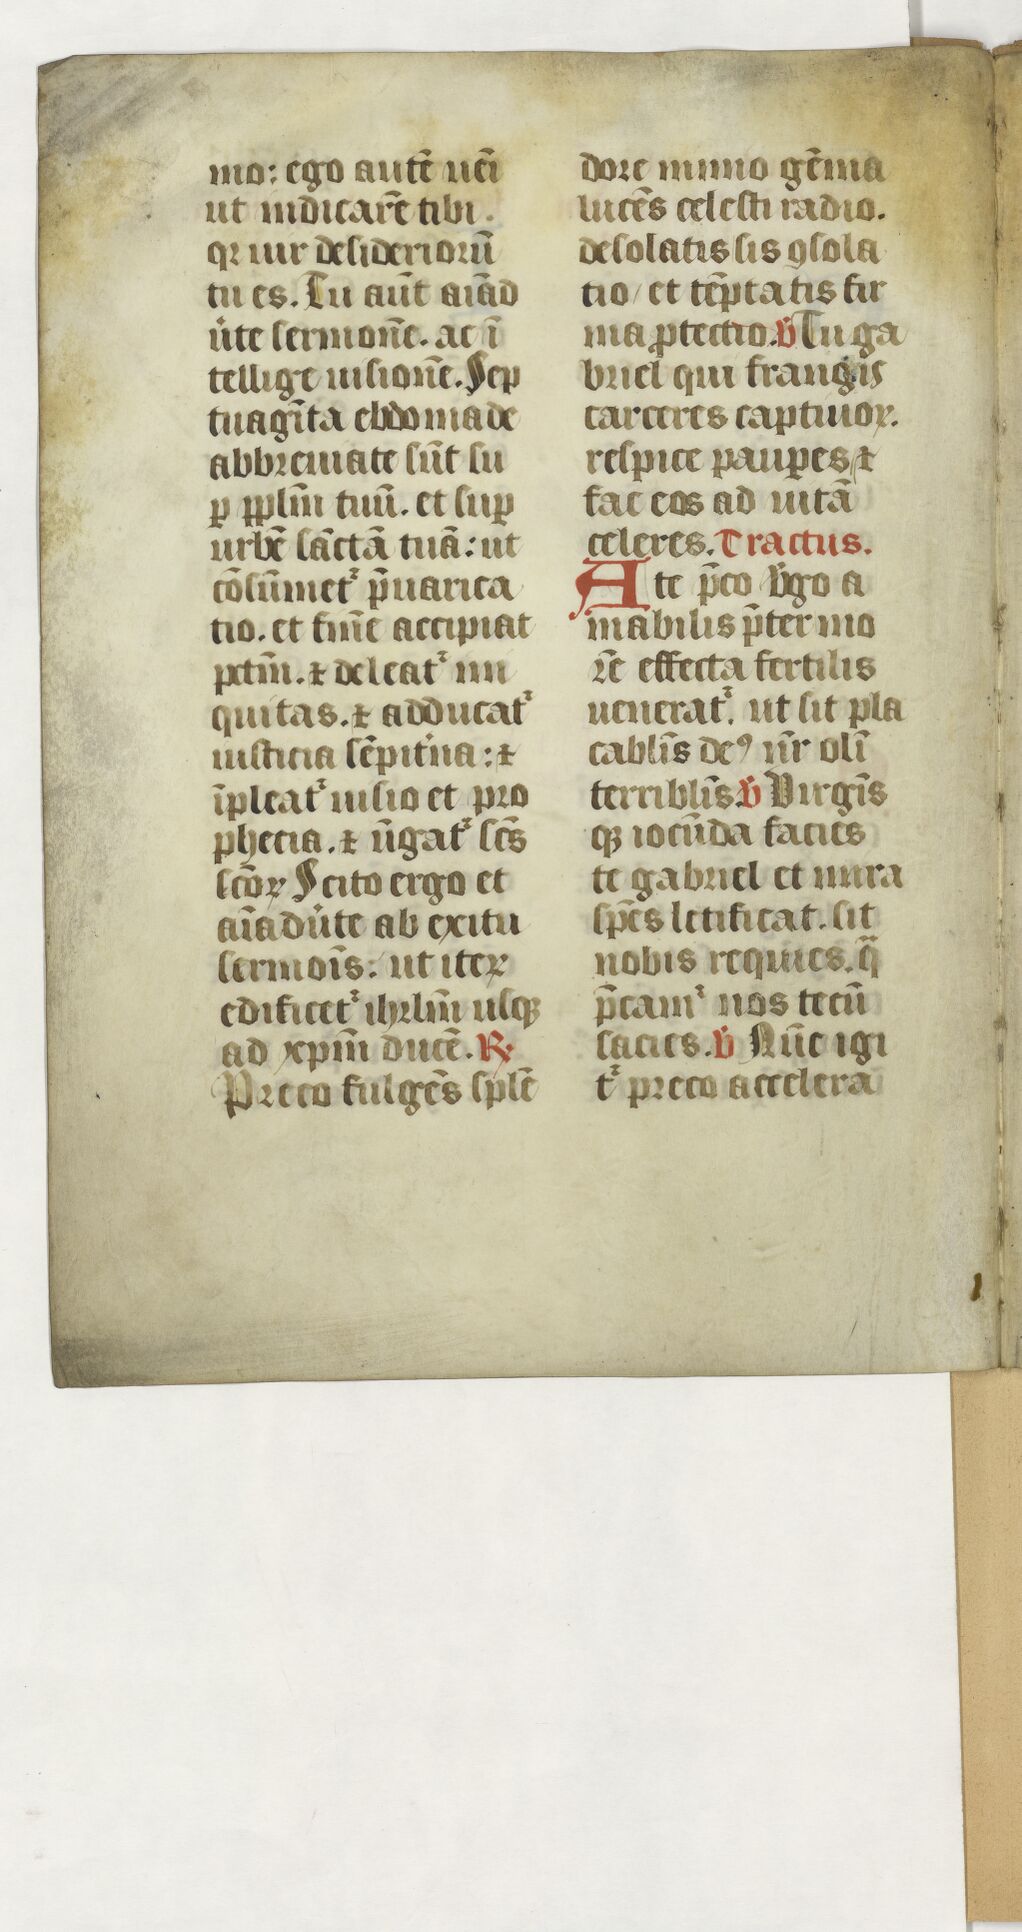 mo: ego autē uēi
ut indicarē tibi.
qr uir desideriorū
tu es. Tu aūt aīad
ūte sermonē. ac ī
tellige uisionē. Sep
tuagīta ebdomade
abbreuiate sūt su
ꝑ pplm̄ tuū. et suꝑ
urbē sāctā tuā: ut
cōsūmetᷣ p̄uarica
tio. et finē accipiat
pctm̄. ⁊ deleatᷣ ini
quitas. ⁊ adducatᷣ
iusticia sēpit̄na: ⁊
īpleatᷣ uisio et pro
phecia. ⁊ ūgatᷣ scs̄
scōꝝ Scito ergo et
aīadūte ab exitu
sermoīs: ut iteꝝ
edificetᷣ ihrlm̄ usqꝫ
ad xpm̄ ducē. ℟.
Preco fulgēs splē
dore mimo gēma
lucēs celesti radio.
desolatis sis ꝯsola
tio / et tēptatis fir
ma ꝓtectio. v̄ Tu ga
briel qui frangis
carceres captiuoꝝ.
respice pauꝑes ⁊
fac eos ad uitā
celeres. Tractus.
A te p̄co v̄go a
mabilis p̄ter mo
rē effecta fertilis
ueneratᷣ. ut sit pla
cablīs deꝰ nr̄ olī
terriblīs v̄ Virgīs
qꝫ iocūda facies
te gabriel et mira
spēs letificat. sit
nobis requies. q̄
p̄camᷣ nos tecū
facies. v̄ Nūc igi
tᷣ preco accelera